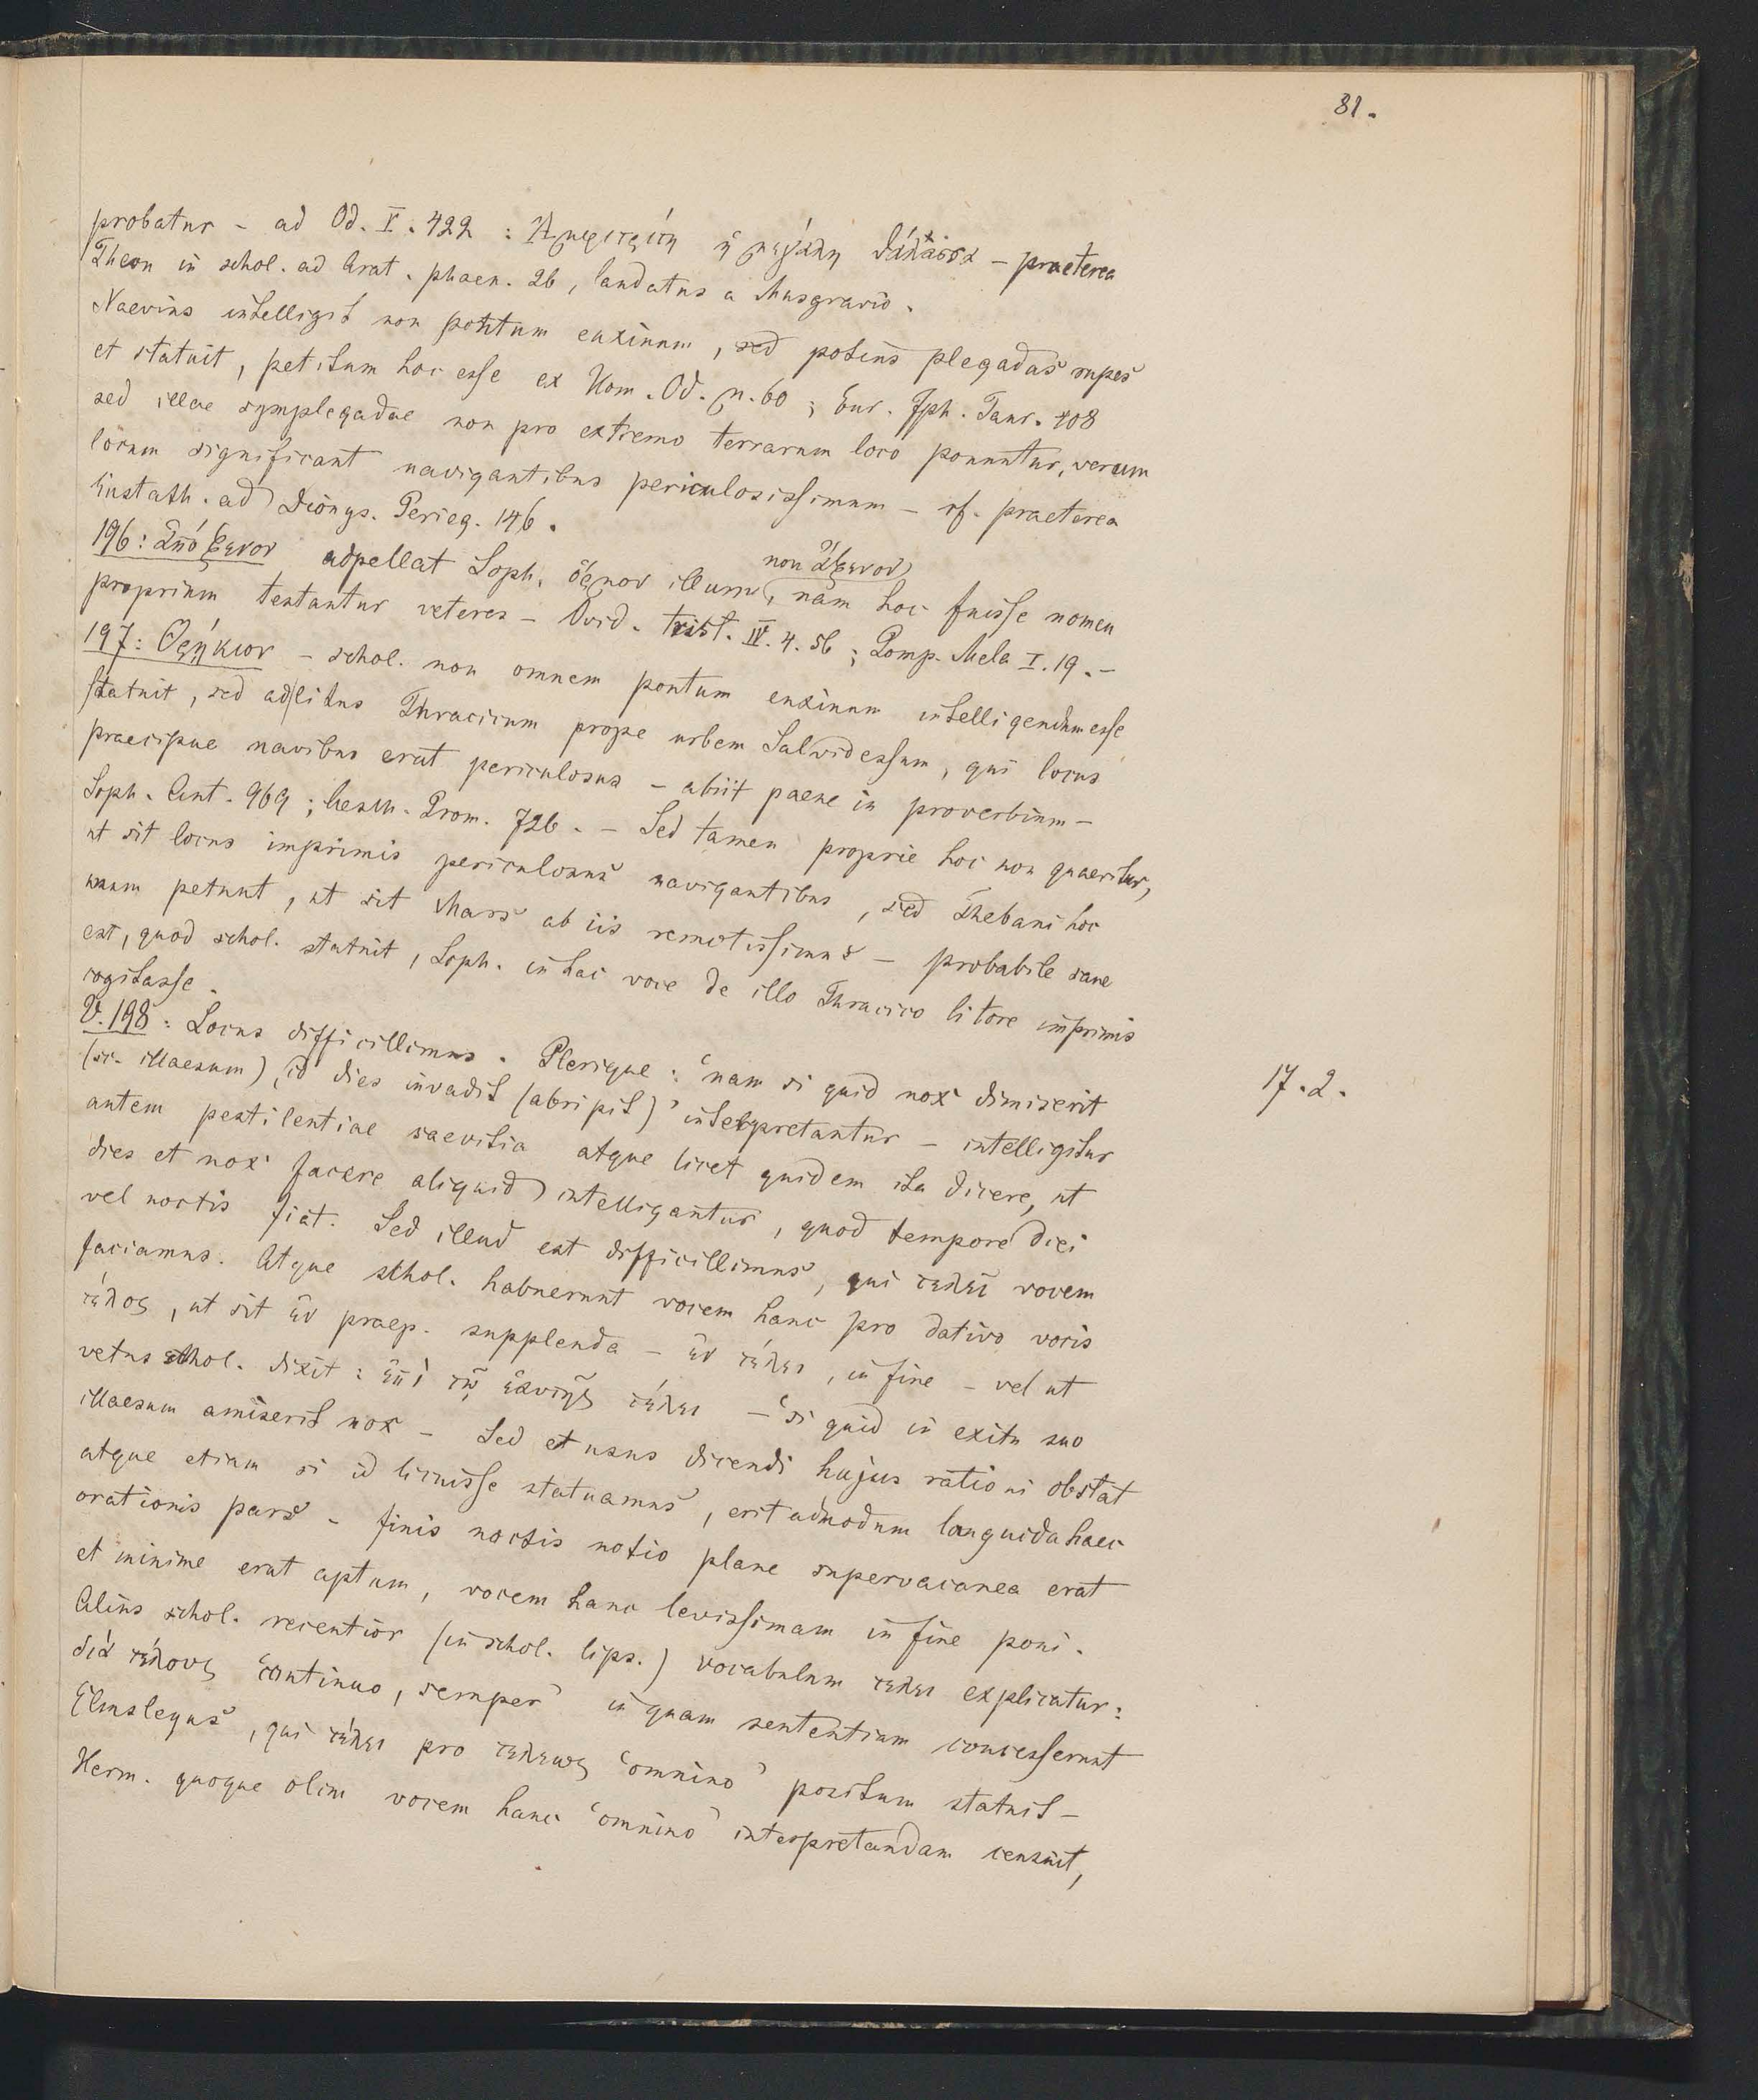 81.
probatur – ad Od. V. 422 : Ἀμφιτρίτη ἡ μεγάλη θάλασσα – praeterea
Theon in schol. ad Arat. phaen. 26, laudatus a Musgravio.
Naevius intelligit non pontum euxinum, sed potius plegadas rupes
et statuit, petitum hoc esse ex Hom. Od. μ. 60 ; Eur. Iph. Taur. 408
sed illae symplegadae non pro extremo terrarum loco ponuntur, verum
locum significant navigantibus periculosissimum – cf. praeterea
Eustath. ad Dionys. Perieg. 146.
196: ἀπόξενον adpellat Soph. ὅρμον illum, non ἄξενον, nam hoc fuisse nomen
proprium testantur veteres – Ovid. trist. IV. 4. 56 ; Pomp. Mela I. 19. –
197: Θρῄκιον – schol. non omnem pontum euxinum intelligendum esse
statuit, sed ad litus Thracicum prope urbem Salvidessum, qui locus
praecipue navibus erat periculosus – abiit paene in proverbium –
Soph. Ant. 969 ; Aesch. Prom. 726. – Sed tamen proprie hoc non quaeritur,
ut sit locus imprimis periculosus navigantibus, sed Thebani hoc
unum petunt, ut sit Mars ab iis remotissimus – probabile sane
est, quod schol. statuit, Soph. in hac voce de illo Thracico litore imprimis
cogitasse.
V. 198 : Locus difficillimus. Plerique : ‘nam si quid nox dimiserit
17. 2.
(sc. illaesum), id dies invadit (abripit)’ interpretantur – intelligitur
autem pestilentiae saevitia atque licet quidem ita dicere, ut
dies et nox facere aliquid intelligantur, quod tempore diei
vel noctis fiat. Sed illud est difficillimus, qui τελει vocem
faciamus. Atque schol. habuerunt vocem hanc pro dativo vocis
τέλος, ut sit ἐν praep. supplenda – ἐν τέλει, in fine – vel ut
vetus schol. dixit : ἐπὶ τῷ ἑαυτῆς τέλει – ‘si quid in exitu suo
illaesum amiserit nox – Sed et usus dicendi hujus rationi obstat
atque etiam si id licuisse statuamus, erit admodum languida haec
orationis pars – finis noctis notio plane supervacanea erat
et minime erat aptum, vocem hanc levissimam in fine poni.
Alius schol. recentior (in schol. lips.) vocabulum τελει explicatur :
διὰ τέλους ‘continuo, semper’ in quam sententiam concesserunt
Elmsleyus, qui τέλει pro τελεως ‘omnino’ positum statuit –
Herm. quoque olim vocem hanc ‘omnino’ interpretandam censuit,